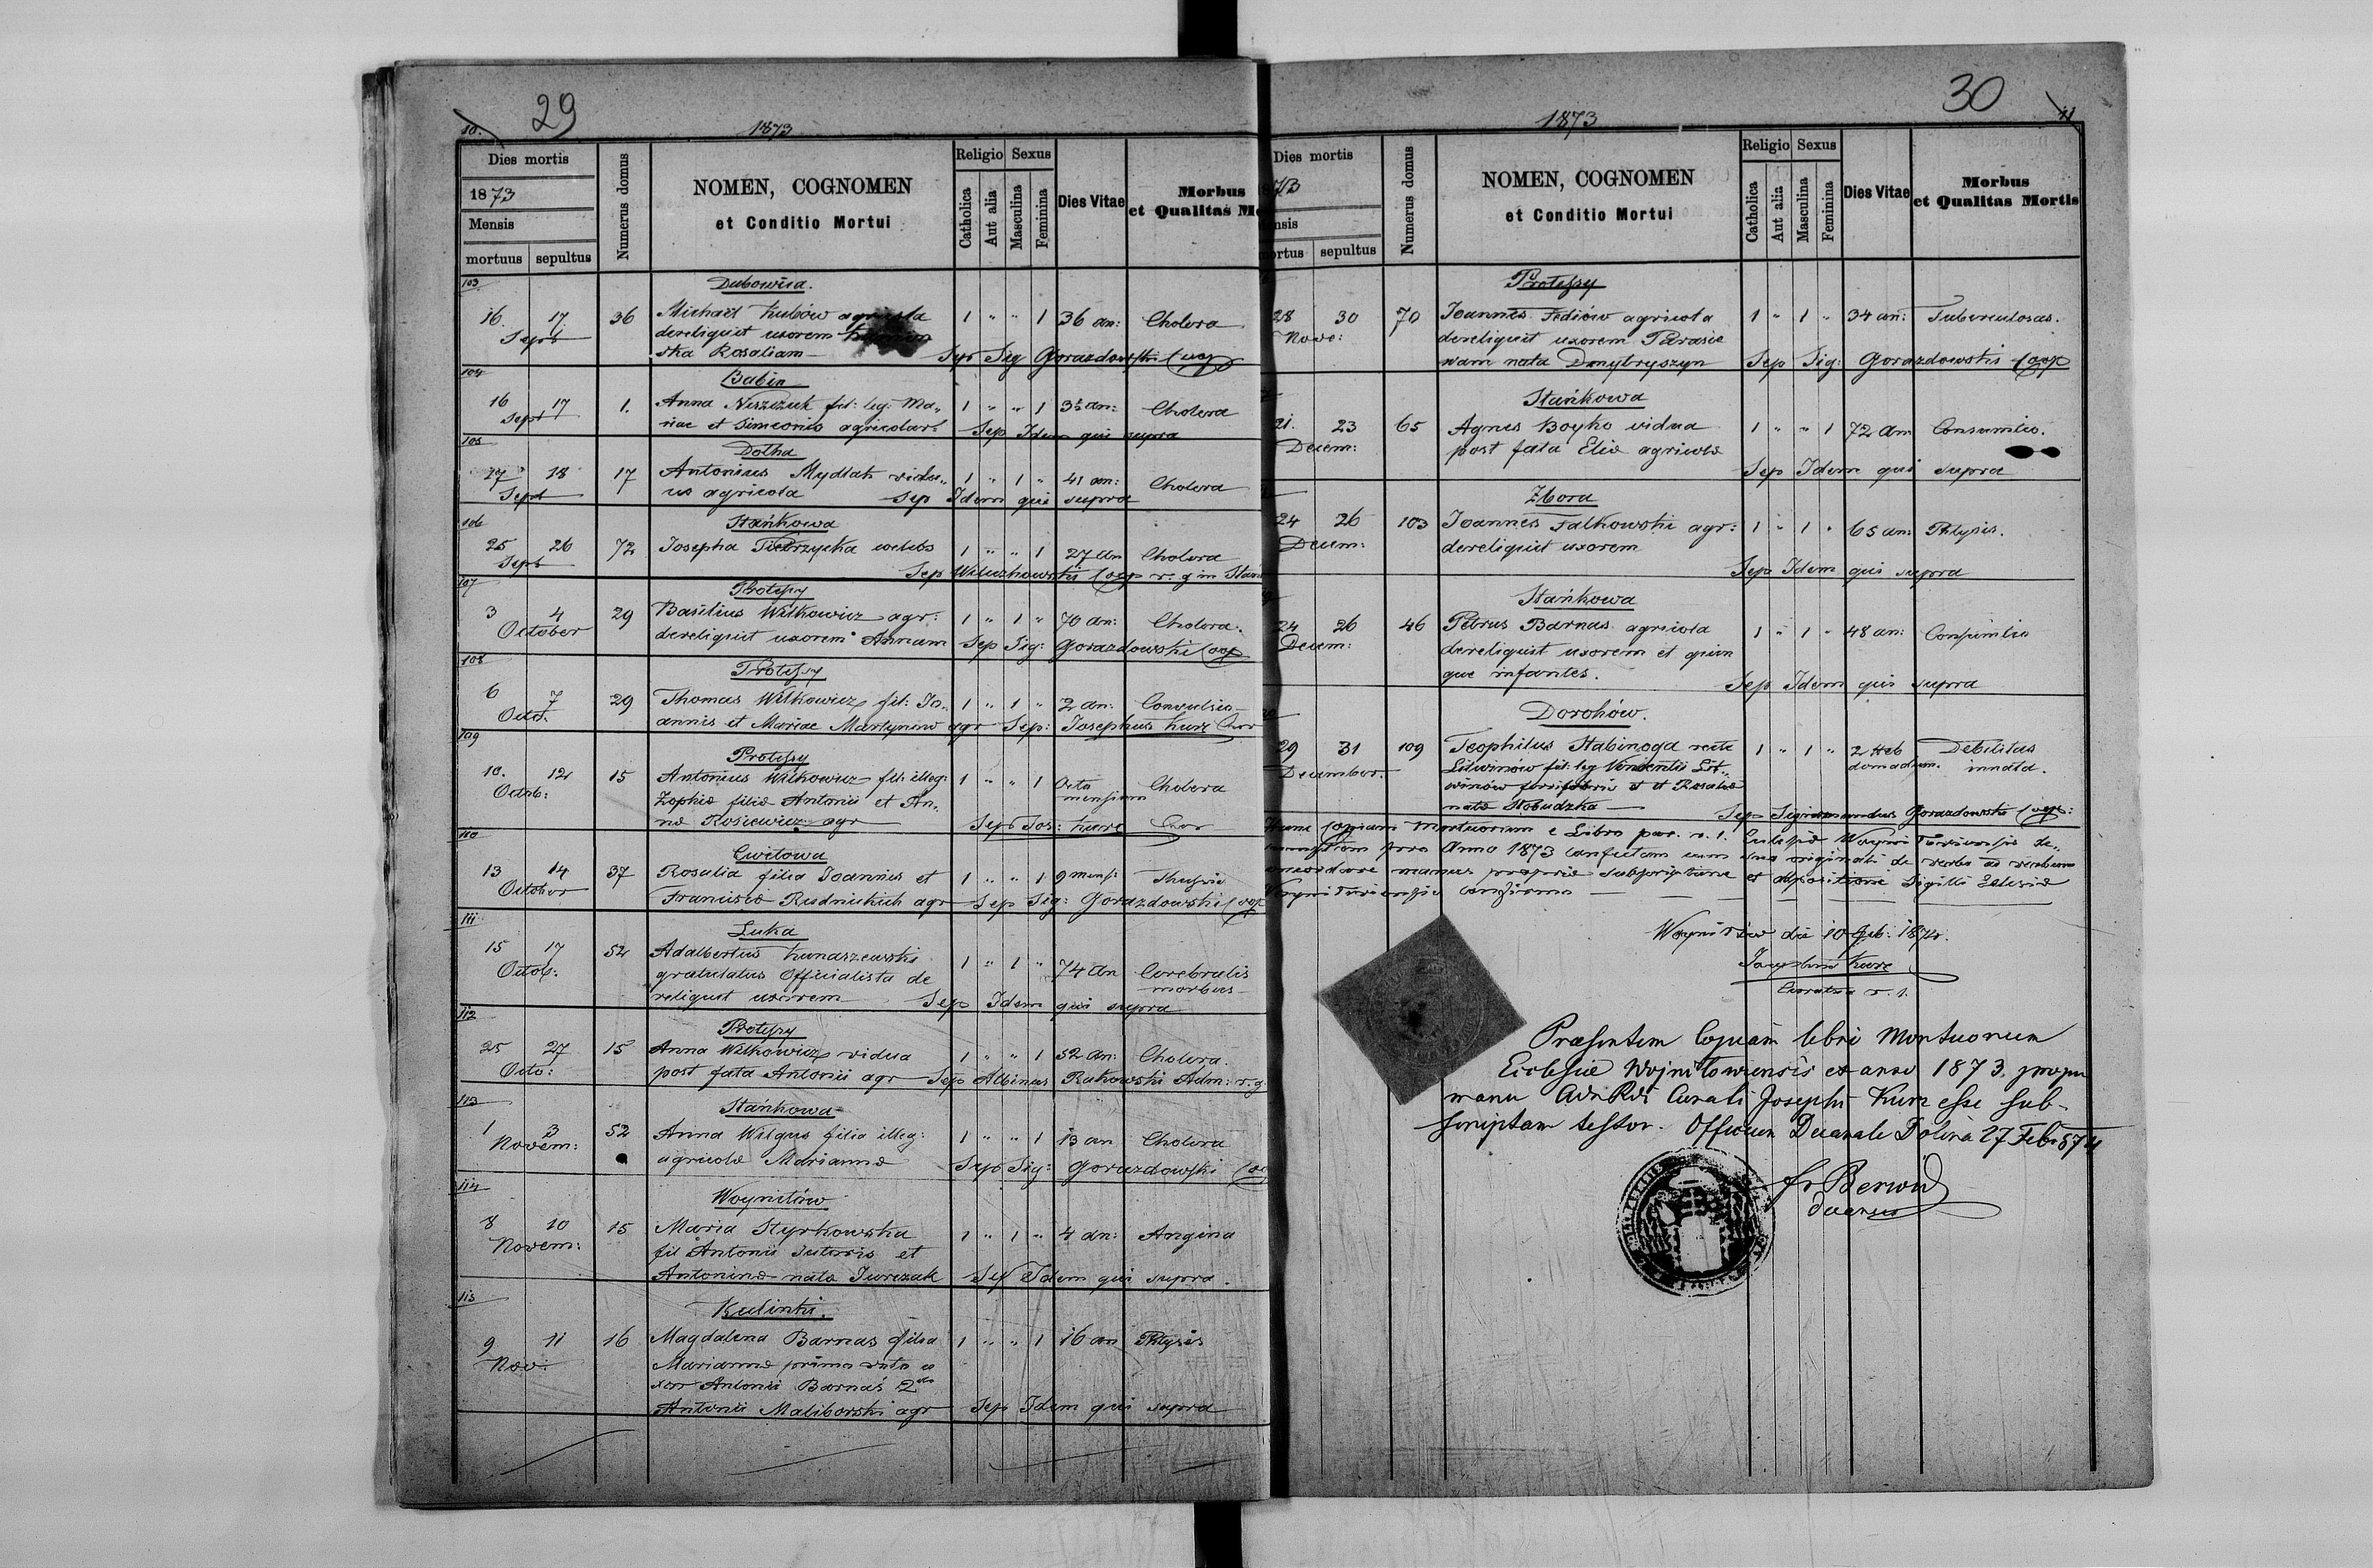 29
10.
1873
Dies mortis
1873
Mensis
mortuus sepultus
Numerus domus
NOMEN, COGNOMEN
et Conditio Mortui
Religio Sexus
Catholica
Aut alia
Masculina
Feminina
Dies Vitae
Morbus
et Qualitas Mo
103
Dubowica.
16 17 36 Michael Kubów agricola 1 " " 1 36 an: Cholera
Sept dereliquit uxorem
Rosaliam Sep Sig Gorazdowski Coop
104
Babin
16 17 1. Anna Neszczuk fil: leg: Ma„ 1 " " 1 3½ an: Cholera
Sept riae et Simeonis agricolar Sep Idem qui supra
105
Dołha
17 18 17 Antonius Mydlak vidu„ 1 " 1 " 41 an: Cholera
Sept us agricola Sep Idem qui supra
106
Stańkowa
25 26 72 Josepha celebs 1 " " 1 27 an Cholera
Sept Sep Coop r. g in Stan
107
Protessy
3 4 29 Basilius Witkowicz agr: 1 " 1 " 70 an: Cholera.
October dereliquit uxorem Annam Sep Sig: Gorazdowski Coop
108
Protessy
6 7 29 Thomas Witkowicz fil: Jo„ 1 " 1 " 2 an: Convulsio
Octo. annis et Mariae Martynów agr Sep: Josephus Kurc Cur
109
Protessy
10. 12 15 Antonius Witkowicz fil: illeg: 1 " " 1 Octo Cholera
Octob: Zophiæ filiæ Antonii et An„ mensium
næ Rosiewicz agr Sep Jos: Kurc Cur
110
Cwitowa
13 14 37 Rosalia filia Joannis et 1 " " 1 9 mens:
October Franciscæ Rudnickich agr Sep Sig: Gorazdowski Coop
111
Luka
15 17 52 Adalbertus Kunaszewski 1 " 1 " 74 an Cerebralis
Octob: Officialista de morbus
religuit uxorem Sep Idem qui supra
112
Protessy
25 27 15 Anna Witkowicz vidua 1 " " 1 52 an: Cholera.
Octo: post fata Antonii agr Sep Albinus Rutkowski Adm: r. g.
113
Stańkowa
1 3 52 Anna Wilgus filia illeg: 1 " " 1 13 an Cholera
Novem: agricolæ Mariannæ Sep Sig: Gorazdowski Co
114
Woynitów
8 10 15 Maria Styrkowska 1 " 1 " 4 an: Angina
Novem: fil Antonii sutoris et
Antoninæ nata Jurczak Sep Idem qui supra.
115
Kulinki.
9 11 16 Magdalena Barnas filia 1 " " 1 16 an Phtysis
Nov: Mariannæ primo voto u
xor Antonii Barnaś 2do
Antonii Maliborski agr Sep Idem qui supra
30
11
1873
Dies mortis
73
ensis
ortus sepultus
Numerus domus
NOMEN, COGNOMEN
et Conditio Mortui
Religio Sexus
Catholica
Aut alia
Masculina
Feminina
Dies Vitae
Morbus
et Qualitas Mortis
Protessy
28 30 70 Joannes Fediów agricola 1 " 1 " 34 an: Tuberculosas.
Nove: dereliquit uxorem Parasie
wam nata Dmytryszyn Sep Sig: Gorazdowski Coop
Stańkowa
21. 23 65 Agnes Boyko vidua 1 " " 1 72 an Consumtio.
Decem: post fata Eliæ agricolæ
Sep Idem qui supra
Zbora
24 26 103 Joannes Falkowski agr: 1 " 1 " 65 an: Phtysis.
Decem: dereliquit uxorem
Sep Idem qui supra
Stańkowa
24 26 46 Petrus Barnas agricola 1 " 1 " 48 an: Consumtio
Decem: dereliquit uxorem et quin
que infantes. Sep Idem qui supra
Dorohów.
29 31 109 Teophilus Habinoga recte 1 " 1 " 2 Heb Debilitas
December. Litwinów fil: leg Vincentii Lit„ domadum. innata.
winów et Rosaliæ
natæ Słobudzka Sep Sigismundus Gorazdowski Coop:
Hanc Copiam Mortuorum e Libro par. r. l. Ecclesiæ de„
pro Anno 1873 confectam cum suo originali de verbo ad verbum
concordare manus propriæ subscriptione et appositione Sigilli Eclesiæ
confirmo
Woynitów die 10 Feb: 1874.
Josephus Kurc
Curatus r. l.
Præsentem Copiam libri Mortuorum
Ecclesiæ Wojniłowiensis ex anno 1873. propr
manu Curati Josephi Kurc esse sub-
scriptam testor. Officium Decanale Dolina 27 Feb 874
fr Berwid
decanus